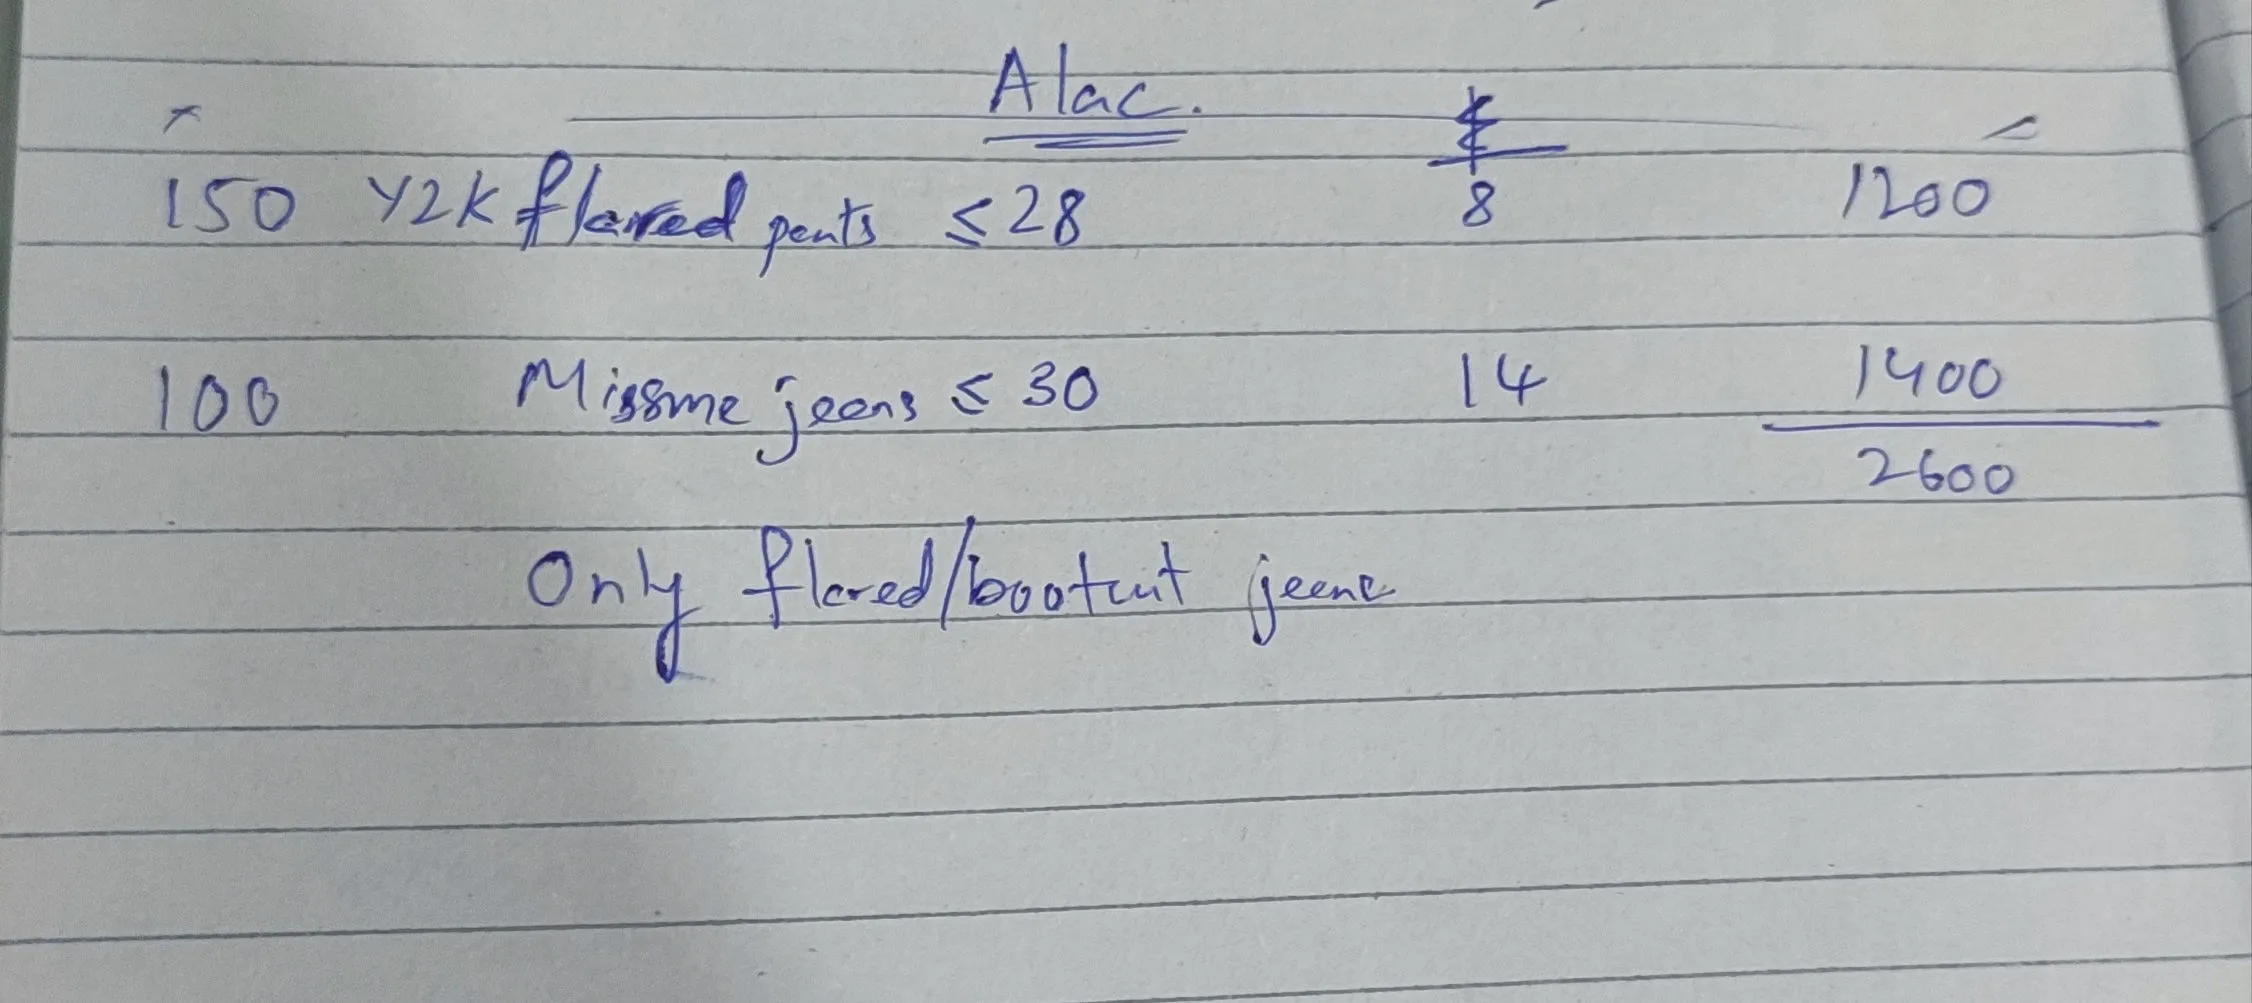 Alac.
150 Y2K flared pants ≤ 28 8 1200
100 Missme jeans ≤ 30 14 1400
2600
Only flared/bootcut jeans